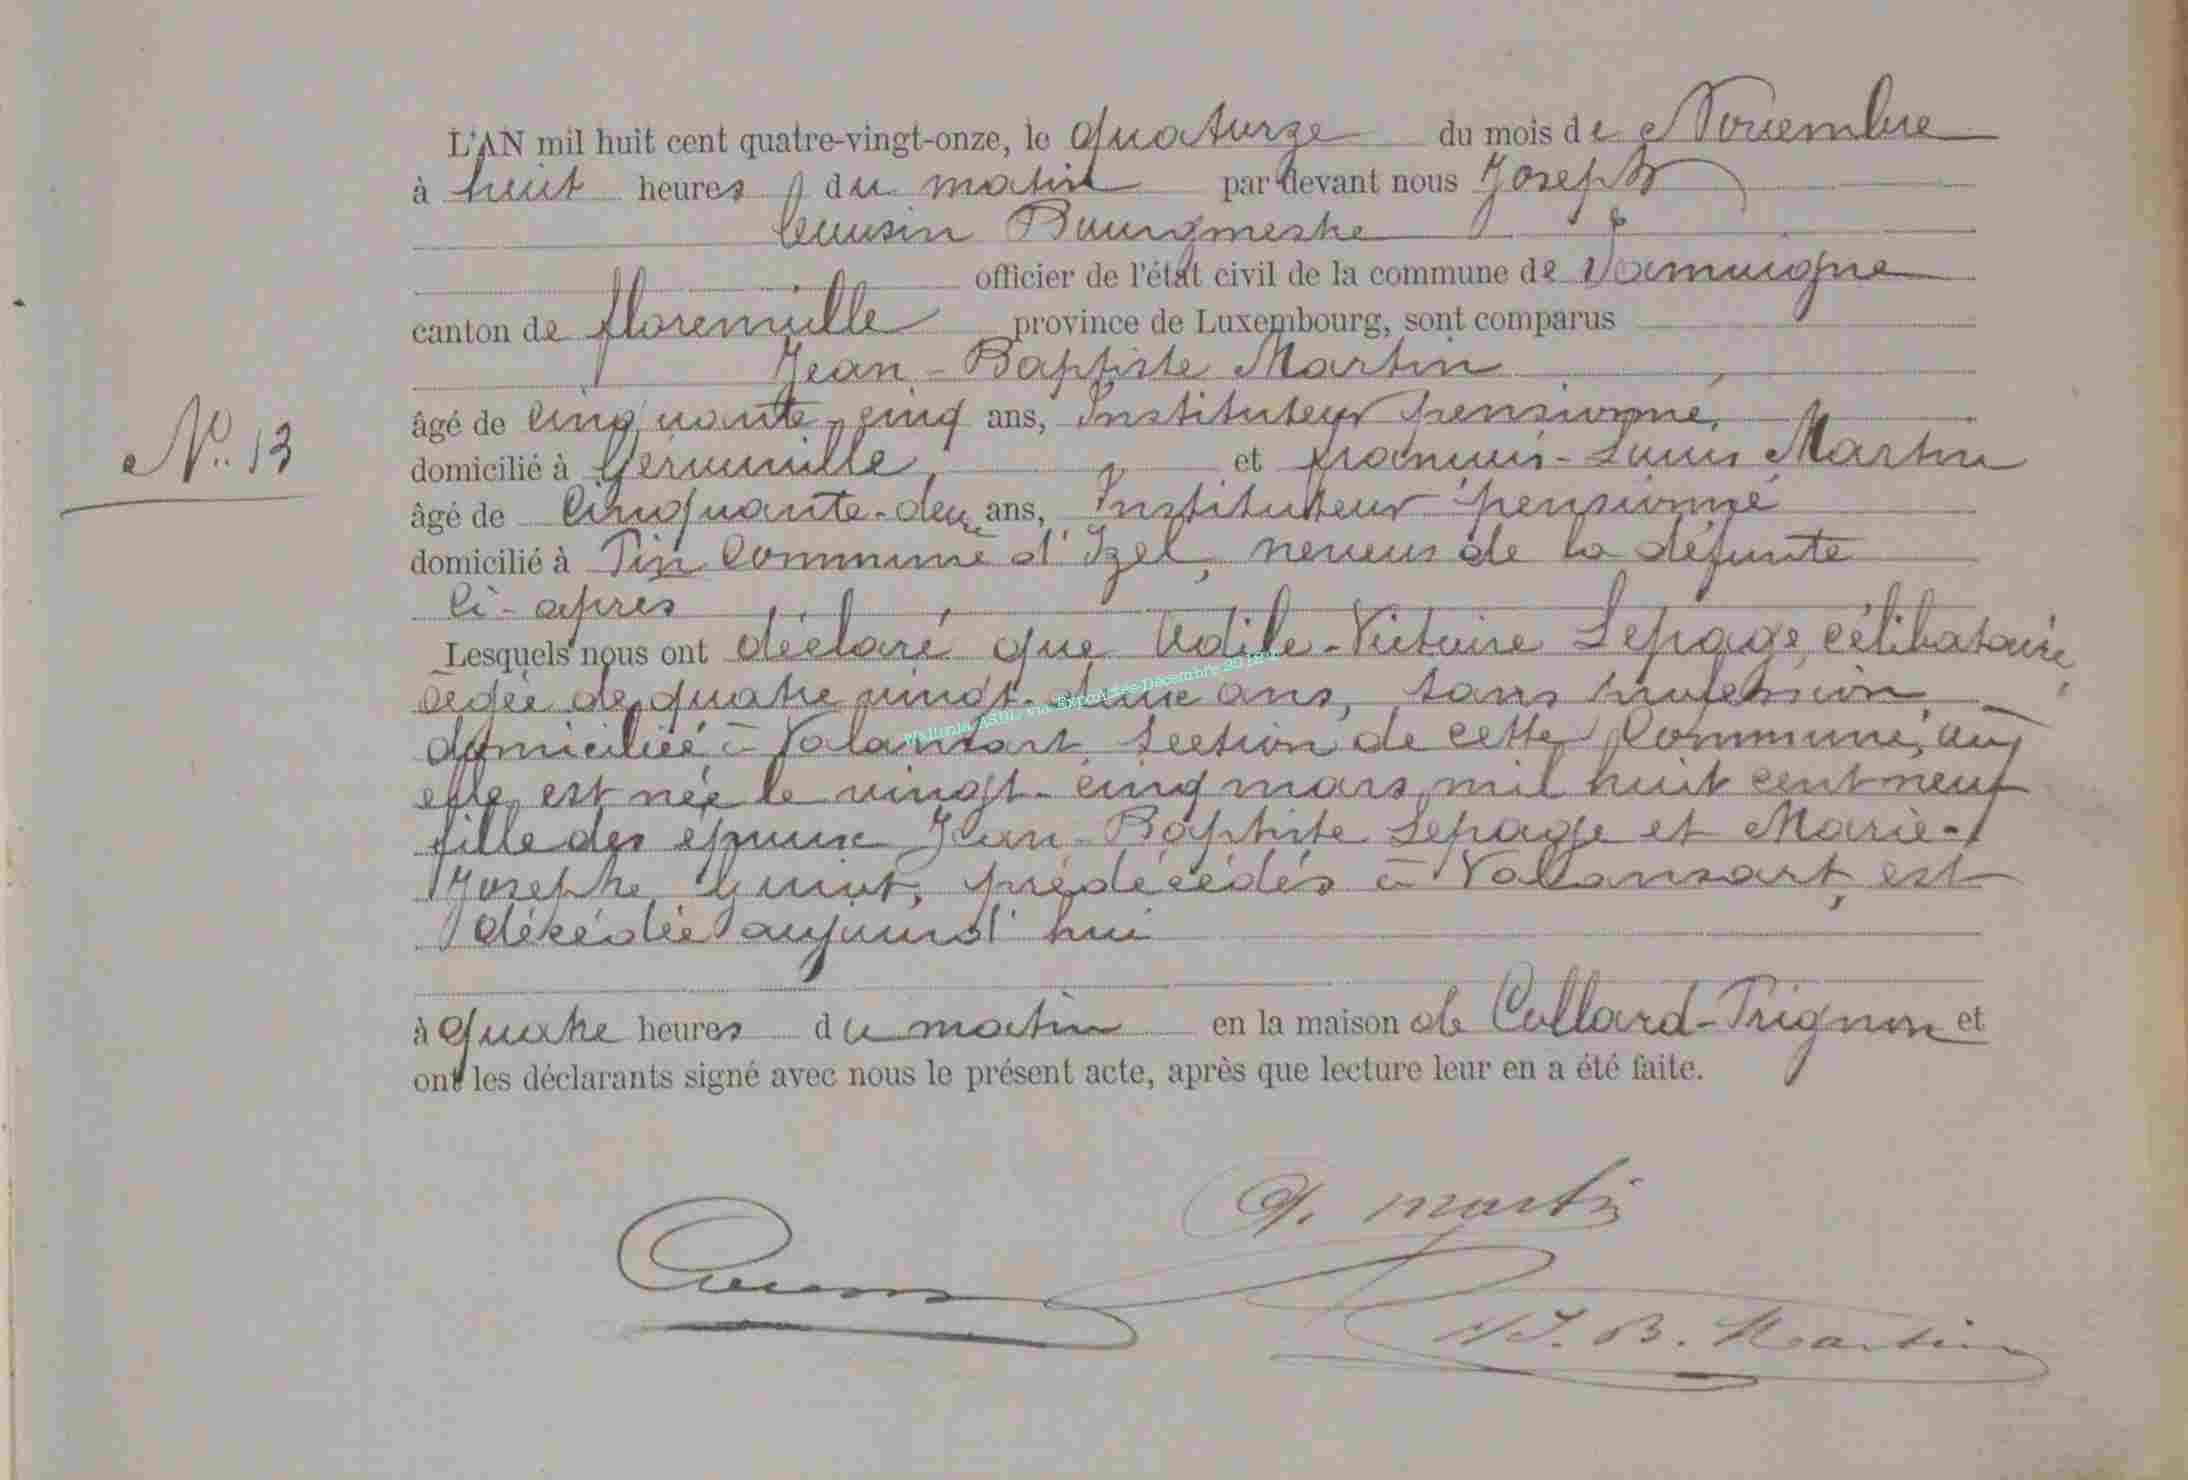 L'AN mil huit cent quatre-vingt-onze, le quatorze du mois de Novembre
à huit heures du matin par devant nous Joseph
Cousin Bourgmestre
officier de l'état civil de la commune de Jamoigne
canton de florenville province de Luxembourg, sont comparus
Jean-Baptiste Martin
âgé de cinquante-cinq ans, Instituteur pensionné,
N° 13
domicilié à Gérouville, et françois-Louis Martin
âgé de Cinquante-deux ans, Instituteur pensionné
domicilié à Pin Commune d'Izel, neveux de la défunte
Ci-après
Lesquels nous ont déclaré que Odile-Victoire Lepage, célibataire,
âgée de quatre vingt-deux ans, sans profession,
Wallonia ASBL, via ExpoActes-Décembre 2018
domiciliée à Valansart, section de cette Commune, où
elle est née le vingt-cinq mars mil huit cent neuf
fille des époux Jean-Baptiste Lepage et Marie-
Josephe Guiot, prédécédés à Valansart, est
décédée aujourd'hui
à quatre heures du matin en la maison de Collard-Trignon et
ont les déclarants signé avec nous le présent acte, après que lecture leur en a été faite.
martin
J. B. Martin